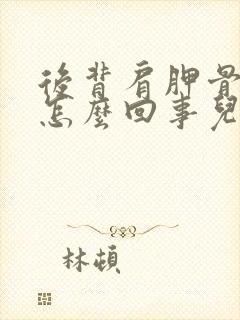 後背肩胛骨
怎麼回事兒
林頓